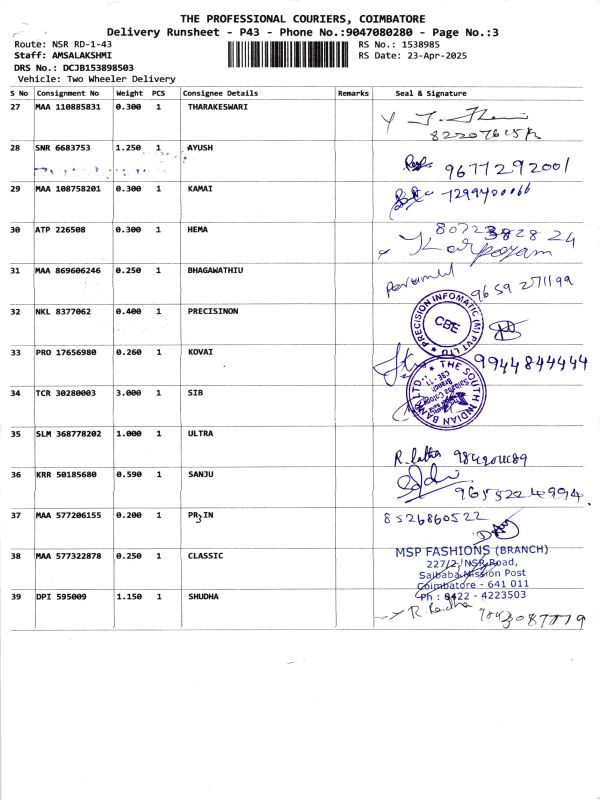 THE PROFESSIONAL COURIERS, COIMBATORE
Delivery Runsheet - P43 - Phone No.:9047080280 - Page No.:3
Route: NSR RD-1-43 RS No.: 1538985
Staff: AMSALAKSHMI RS Date: 23-Apr-2025
DRS No.: DCJB153898503
Vehicle: Two Wheeler Delivery
S No Consignment No Weight PCS Consignee Details Remarks Seal & Signature
27 MAA 110885831 0.300 1 THARAKESWARI
28 SNR 6683753 1.250 1 AYUSH
9677292001
29 MAA 108758201 0.300 1 KAMAI
30 ATP 226508 0.300 1 HEMA
Karpagam
31 MAA 869606246 0.250 1 BHAGAWATHIU
9659 271199
32 NKL 8377062 0.400 1 PRECISINON
PRECISION INFOMATIC (M) PVT LTD
CBE
33 PRO 17656980 0.260 1 KOVAI
9944844444
34 TCR 30280003 3.000 1 SIB
THE SOUTH INDIAN BANK LTD.
35 SLM 368778202 1.000 1 ULTRA
R. Latha
36 KRR 50185680 0.590 1 SANJU
37 MAA 577206155 0.200 1 PRIN
8526860522
38 MAA 577322878 0.250 1 CLASSIC
MSP FASHIONS (BRANCH)
227/2, NSR Road,
Saibaba Mission Post
Coimbatore - 641 011
Ph : 0422 - 4223503
39 DPI 595009 1.150 1 SHUDHA
R Radha